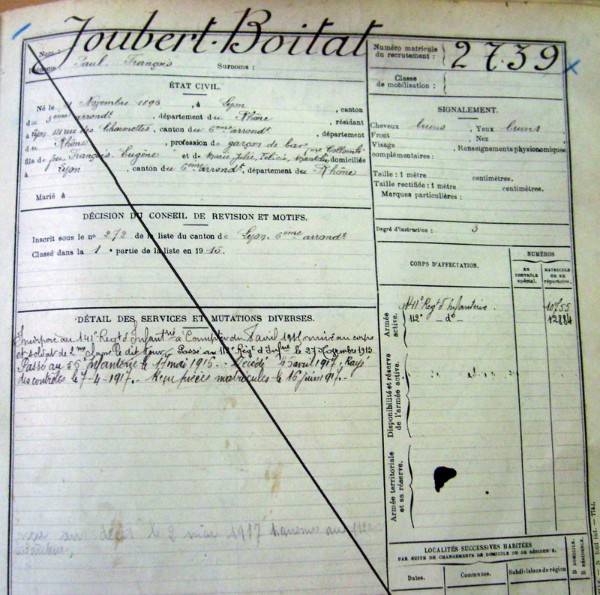 Joubert-Boitat
Nom :
Prénoms : Paul François Surnoms :
Numéro matricule
du recrutement : 2739
Classe
de mobilisation :
ÉTAT CIVIL.
Né le Novembre 1896, à Lyon, canton
du arrondt, département du Rhône, résidant
à Lyon rue des Charmettes, canton du 6ème arrondt, département
du Rhône, profession de garçon de bar,
fils de feu François Eugène et de Marie Julie domiciliés
à Lyon, canton du 6ème arrondt, département des Rhône
Marié à
SIGNALEMENT.
Cheveux bruns, Yeux bruns
Front Nez
Visage Renseignements physionomiques
complémentaires :
Taille : 1 mètre centimètres.
Taille rectifiée : 1 mètre centimètres.
Marques particulières :
DÉCISION DU CONSEIL DE REVISION ET MOTIFS.
Inscrit sous le no 272 de la liste du canton de Lyon 6ème arrondt
Classé dans la 1e partie de la liste en 1915.
Degré d'instruction : 3
CORPS D'AFFECTATION.
NUMÉROS
EN CONTRÔLE spécial.
MATRICULE OU AU répertoire.
Armée active.
141e Régt d'Infanterie 10755
112e - do -
Disponibilité et réserve de l'armée active.
Armée territoriale et sa réserve.
DÉTAIL DES SERVICES ET MUTATIONS DIVERSES.
Incorporé au 141e Régt d'Infantrie à Compter du avril 1915, arrivé au corps
et soldat de 2me classe le dit jour. Passé au 112e Régt d'Infrie le 27 Novembre 1915
Passé au 55 infanterie le 17 mai 1916. - Décédé le 5 avril 1917, Rayé
des contrôles le 7-4-1917. - Reçu pièces matricules le 16 juin 1917. -
le 2 mai 1917 au 112e
LOCALITÉS SUCCESSIVES HABITÉES
PAR SUITE DE CHANGEMENTS DE DOMICILE OU DE RÉSIDENCE.
Dates. Communes. Subdivisions de région
D. DOMICILE.
R. RÉSIDENCE.